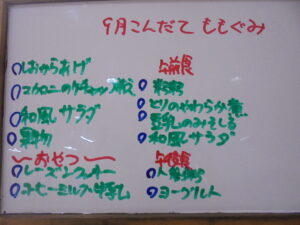 9月こんだて ももぐみ
しおからあげ
マカロニのケチャップ煮
和風サラダ
果物
おやつ
レーズンクッキー
コーヒーミルク牛乳
午前食
軟飯
とりのやわらか煮
豆乳のみそしる
和風サラダ
午後食
ヨーグルト